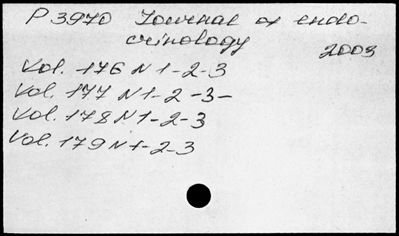 P 3970 Journal of endo-
crinology
2003
Vol. 176 N 1-2-3
Vol. 177 N 1-2-3-
Vol. 178 N 1-2-3
Vol. 179 N 1-2-3